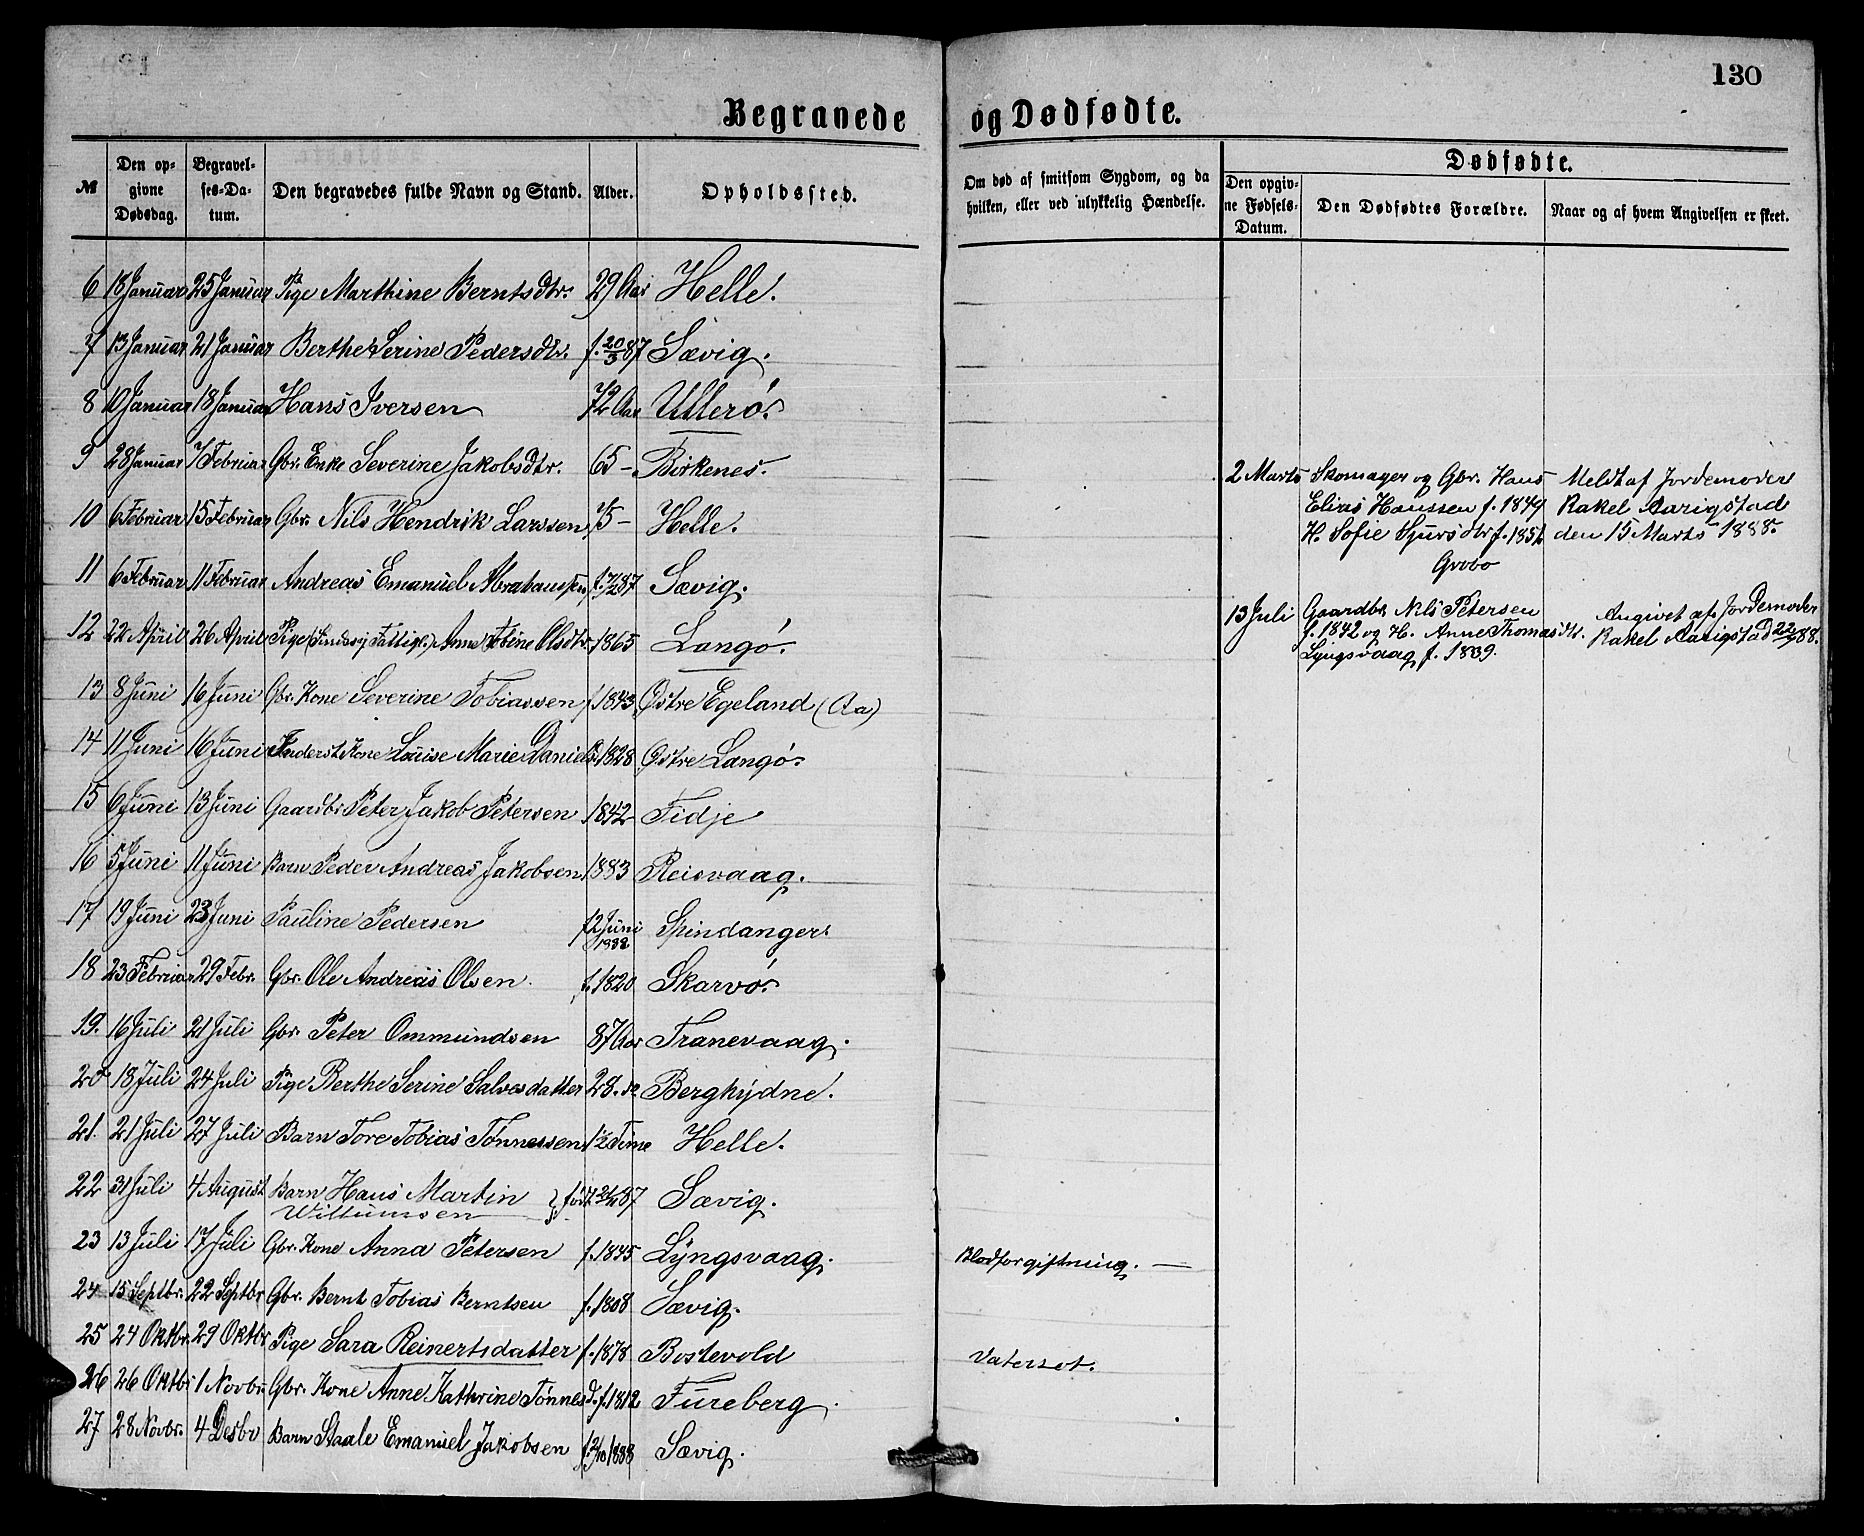 130
Begravede og Dødfødte.
№ | Den opgivne Dødsdag. | Begravelses-Datum. | Den begravedes fulde Navn og Stand. | Alder. | Opholdssted. | Om død af smitsom Sygdom, og da hvilken, eller ved ulykkelig Hændelse. | Dødfødte.
Den opgivne Fødsels-Datum. | Den Dødfødtes Forældre. | Naar og af hvem Angivelsen er skeet.
6 18 Januar 25 Januar Pige Marthine Berntsdtr. 29 Aar Helle.
7 13 Januar 21 Januar Berthe Serine Pedersdtr. f. 20/3 87 Sævig.
8 10 Januar 18 Januar Hans Iversen 72 Aar Ullerø.
9 28 Januar 7 Februar Gbr. Enke Severine Jakobsdtr. 65 – Birkenes.
10 6 Februar 15 Februar Gbr. Nils Hendrik Larssen 75 – Helle.
11 6 Februar 11 Februar Andreas Emanuel Abrahamsen Sævig.
12 22 April 26 April Pige Anna Tobine Olsdtr. 1865 Langø.
13 8 Juni 16 Juni Gbr. Kone Severine Tobiassen f 1843 Østre Egeland (Aa)
14 11 Juni 16 Juni Kone Louise Marie Daniels. 1828 Østre Langø.
15 6 Juni 13 Juni Gaardbr Peter Jakob Petersen 1842 Fidje
16 5 Juni 11 Juni Barn Peder Andreas Jakobsen 1883 Reisvaag.
17 19 Juni 23 Juni Pauline Pedersen f 2 Juni 1888 Spindanger
18 23 Februar 29 Febr. Gbr. Ole Andreas Olsen. f. 1820 Skarvø.
19. 16 Juli 21 Juli Gbr. Peter Ommundsen 87 Aar Tranevaag.
20 18 Juli 24 Juli Pige Berthe Serine Salvesdatter 28. Berghydne.
21. 21 Juli 27 Juli Barn Tore Tobias Tønnessen 1/2 Time Helle.
22 31 Juli 4 August Barn Hans Martin født 87 Sævig.
Willumsen
23 13 Juli 17 Juli Gbr. Kone Anna Petersen f. 1845 Lyngsvaag. Blodforgiftning. —
24 15 Septbr. 22 Septbr Gbr. Bernt Tobias Berntsen f. 1808 Sævig.
25 24 Oktbr. 29 Oktbr Pige Sara Reinertsdatter f. 1878 Bostevold Vatersot.
26 26 Oktbr 1 Novbr. Gbr. Kone Anne Kathrine Tønnesd. f. 1812 Fureberg.
27 28 Novbr. 4 Desbr Barn Staale Emanuel Jakobsen 1888 Sævig.
2 Marts Skomager og Gbr. Hans Meldt af Jordemoder
Elias Hanssen f. 1849 Rakel Aarigstad
H. Sofie Sjursdtr f. 185 den 15 Marts 1888.
Grobø
13 Juli Gaardbr Nils Petersen Angivet af Jordemoder
f. 1842 og H. Anne Thomasdtr. Rakel Aarigstad 22/7 88.
Lyngsvaag f. 1839.